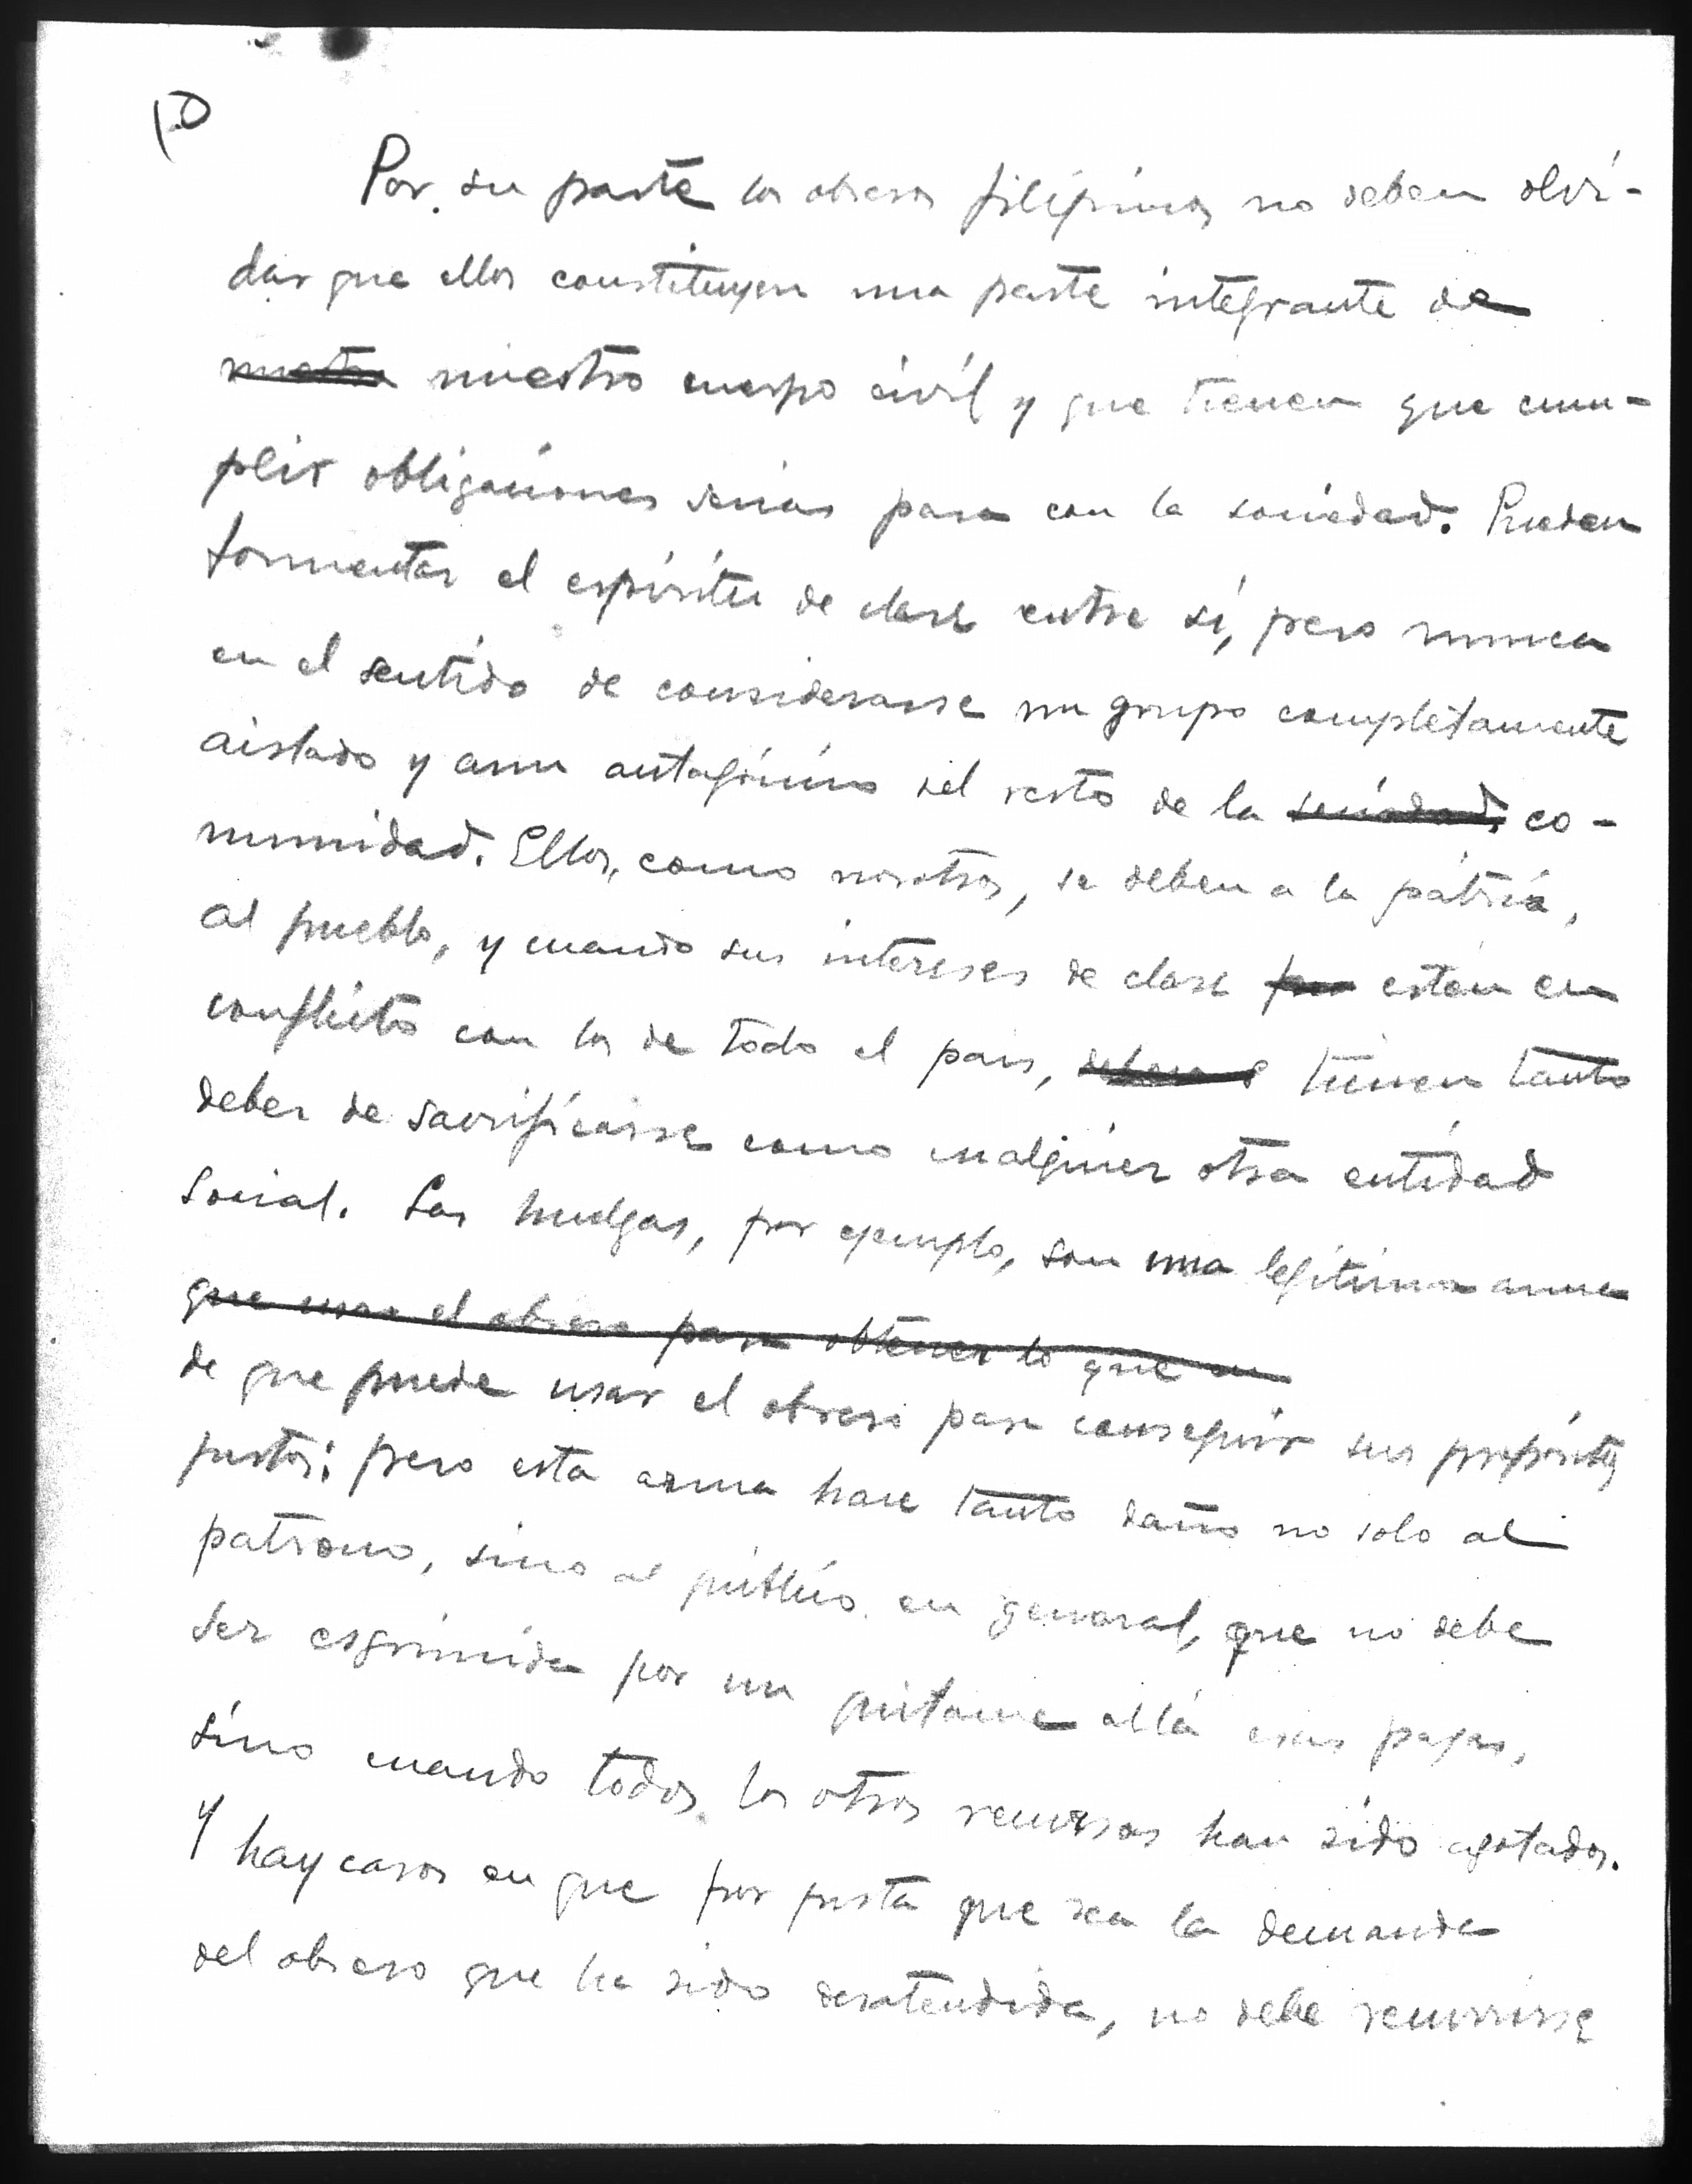 10
Por su parte los obreros filipinos no deben olvi-
dar que ellos constituyen una parte integrante de
nuestra nuestro cuerpo civil y que tienen que cum-
plir obligaciones serias para con la sociedad. Pueden
fomentar el espíritu de clase entre sí, pero nunca
en el sentido de considerarse un grupo completamente
aislado y aun antagónico del resto de la sociedad, co-
munidad. Ellos, como nosotros, se deben a la pátria,
al pueblo, y cuando sus intereses de clase están en
conflicto con los de todo el pais, deben tienen tanto
deber de sacrificarse como cualquier otra entidad
social. Las huelgas, por ejemplo, son una legitima arma
que usa el obrero para obtener lo que en
de que puede usar el obrero para conseguir sus propósitos
justos; pero esta arma hace tanto daño no solo al
patrono, sino al público en general, que no debe
ser esgrimida por un quitame allá esas pajas,
sino cuando todos los otros recursos han sido agotados.
Y hay casos en que por justa que sea la demanda
del obrero que ha sido desatendida, no debe recurrirse